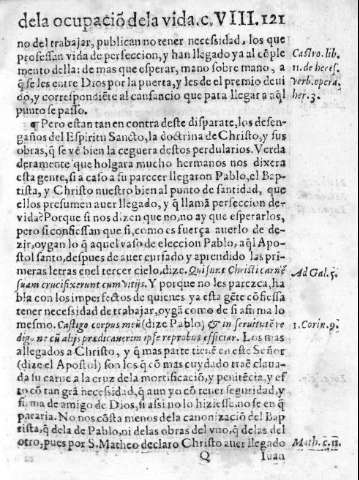 dela ocupaciõ dela vida.c.VIII.121
no del trabajar, publican no tener necessidad, los que
professan vida de perfeccion, y han llegado ya al cõple
mento della: de mas que esperar, mano sobre mano, a
q̃ se les entre Dios por la puerta, y les de el premio deui
do, y correspondiẽte al cansancio que para llegar a aq̃l
punto se passo.
Castro. lib.
11. de heres.
verb. opera.
her. 3.
¶ Pero estan tan en contra deste disparate, los desen-
gaños del Espiritu Sancto, la doctrina de Christo, y sus
obras, q̃ se vè bien la ceguera destos perdularios. Verda
deramente que holgara mucho hermanos nos dixera
esta gente, si a caso a su parecer llegaron Pablo, el Bap-
tista, y Christo nuestro bien al punto de santidad, que
ellos presumen auer llegado, y q̃ llamã perfeccion de-
vida? Porque si nos dizen que no, no ay que esperarlos,
pero si confiessan que si, como es fuerça auerlo de de-
zir, oygan lo q̃ aquel vaso de eleccion Pablo, aq̃l Apos-
tol santo, despues de auer cursado y aprendido las pri-
meras letras en el tercer cielo, dize. Qui sunt Christi carnẽ
suam crucifixerunt cum vitijs. Y porque no les parezca, ha
bla con los imperfectos de quienes ya esta gẽte cõfiessa
tener necessidad de trabajar, oygã como de si afirma lo
mesmo. Castigo corpus meũ (dize Pablo) & in seruitutẽ re
digo ne cũ alijs predicauerim ipse reprobus efficiar. Los mas
allegados a Christo, y q̃ mas parte tienẽ en este Señor
(dize el Apostol) son los q̃ cõ mas cuydado traẽ claua-
da su carne a la cruz de la mortificaciõ, y penitẽcia, y es
to cõ tan grã necessidad, q̃ aun yo cõ tener seguridad, y
firma de amigo de Dios, si assi no lo hiziesse, no se en q̃
pararia. No nos cõsta menos de la canonizaciõ del Bap
tista, q̃ dela de Pablo, ni delas obras del vno, q̃ de las del
otro, pues por S. Matheo declaro Christo auer llegado
Ad Gal. 5.
1. Corin. 9.
Math. c. 11.
Q Iuan